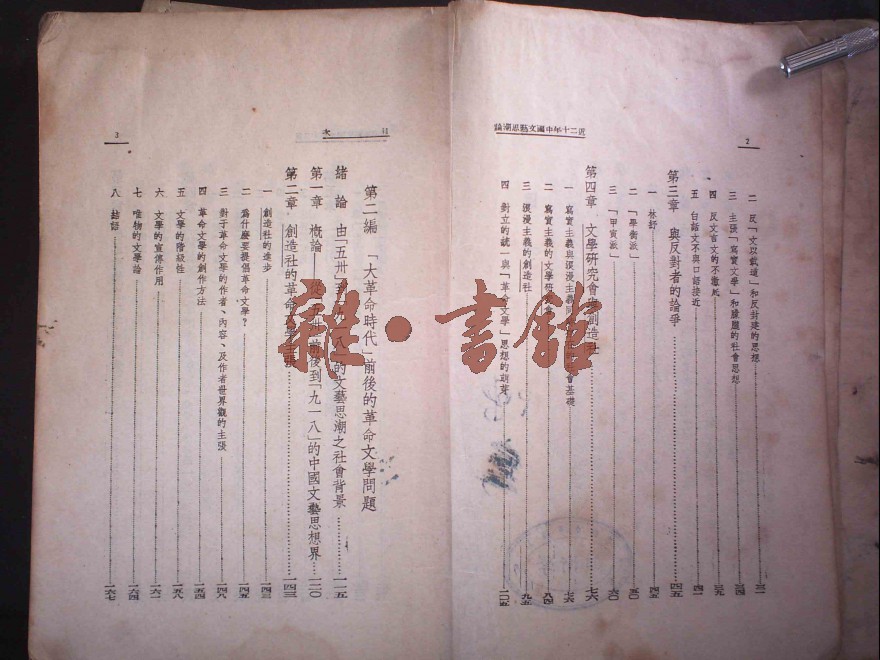 近二十年中國文藝思潮論
2
二 反「文以載道」和反封建的思想 三一
三 主張「寫實文學」和朦朧的社會思想 三四
四 反文言文的不徹底 三九
五 白話文不與口語接近 四一
第三章 與反對者的論爭 四五
一 林紓 四五
二 「學衡派」 五〇
三 「甲寅派」 六〇
第四章 文學研究會與創造社 七六
一 寫實主義與浪漫主義 會基礎 七六
二 寫實主義的文學研究會 八四
三 浪漫主義的創造社 九五
四 對立的統一與「革命文學」思想的萌芽 一〇五
目 次
3
第二編 「大革命時代」前後的革命文學問題
緒論 由「五卅」到「九一八」的文藝思潮之社會背景 一一五
第一章 概論——從「五卅」前後到「九一八」的中國文藝思想界 一二〇
第二章 創造社的革命文學主張 一四三
一 創造社的進步 一四三
二 爲什麼要提倡革命文學? 一四五
三 對于革命文學的作者、內容、及作者世界觀的主張 一四八
四 革命文學的創作方法 一五四
五 文學的階級性 一五八
六 文學的宣傳作用 一六二
七 唯物的文學論 一六四
八 結語 一六七
雜·書館